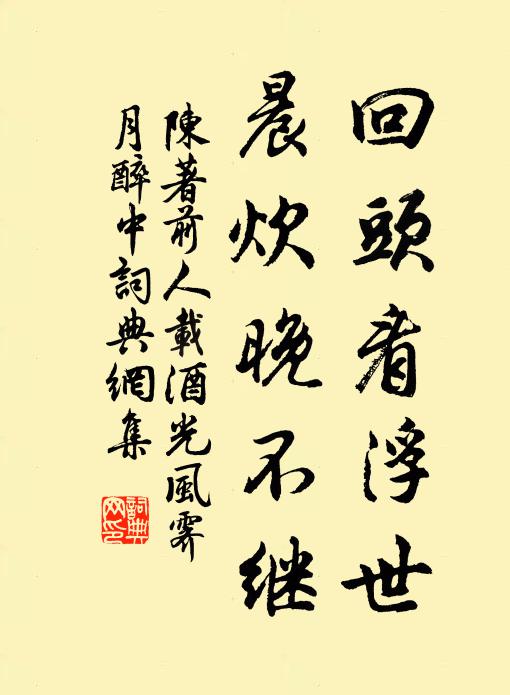 回頭看浮世
晨炊晚不继
陳著前人載酒光風霽
月醉中詞典網集
詞典网印